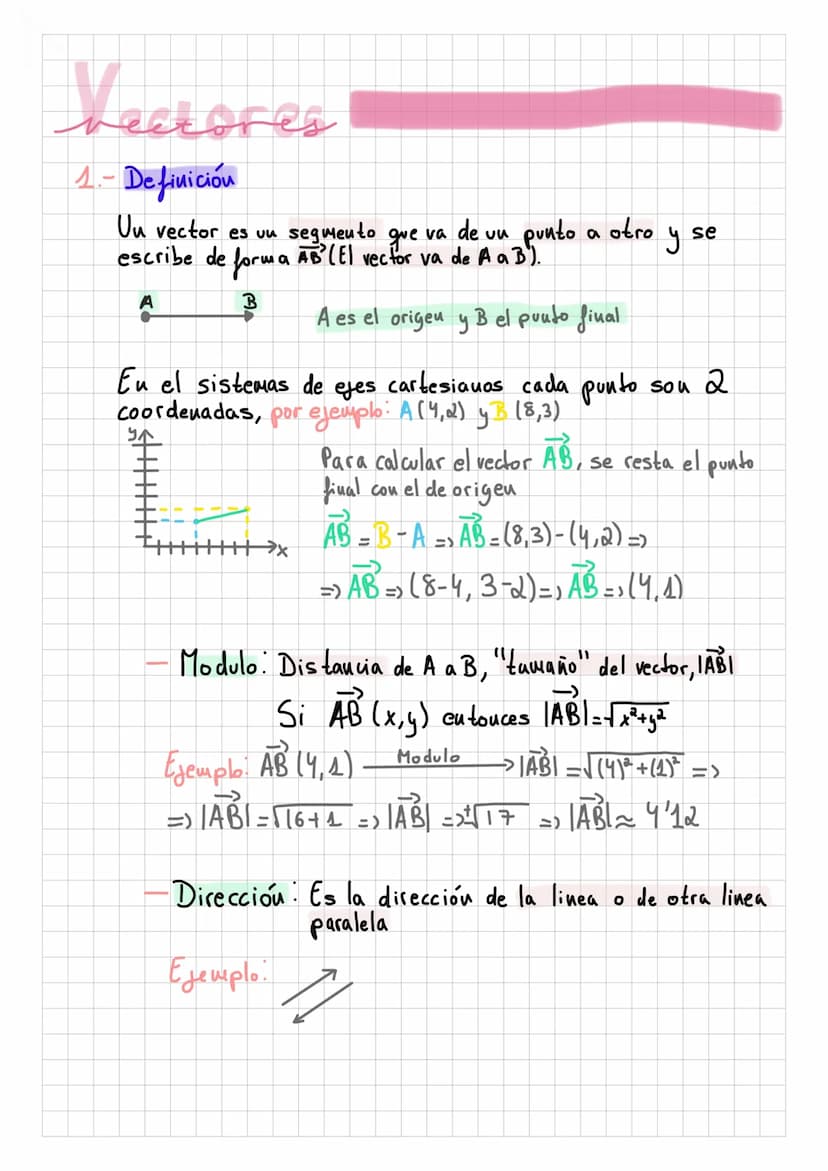 Vectores
vectores
1.- Definición
Un vector es un segmento que va de un punto a otro y se
escribe de forma A⃗B⃗ (El vector va de A a B).
A B
A es el origen y B el punto final
En el sistemas de ejes cartesianos cada punto son 2
coordenadas, por ejemplo: A(4,2) y B (8,3)
y
x
Para calcular el vector A⃗B⃗, se resta el punto
final con el de origen
A⃗B⃗ = B - A => A⃗B⃗ = (8,3)-(4,2) =>
=> A⃗B⃗ => (8-4, 3-2) => A⃗B⃗ => (4,1)
- Modulo: Distancia de A a B, "tamaño" del vector, |A⃗B⃗|
Si A⃗B⃗ (x,y) entonces |A⃗B⃗| = √x²+y²
Ejemplo: A⃗B⃗ (4,1) Modulo → |A⃗B⃗| = √(4)²+(1)² =>
=> |A⃗B⃗| = √16+1 => |A⃗B⃗| => ±√17 => |A⃗B⃗| ≈ 4'12
- Dirección: Es la dirección de la linea o de otra linea
paralela
Ejemplo: